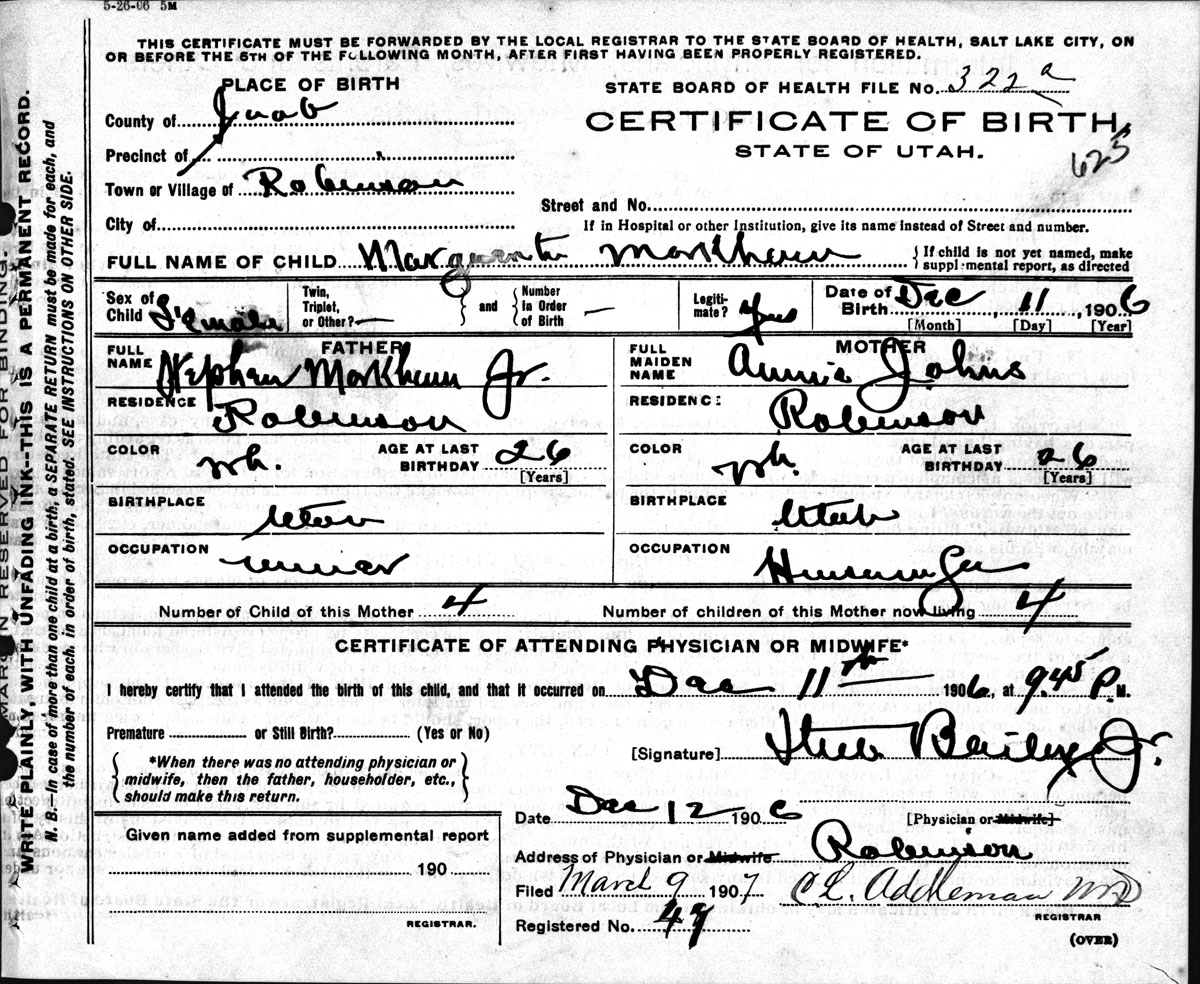 5-26-06 5M
THIS CERTIFICATE MUST BE FORWARDED BY THE LOCAL REGISTRAR TO THE STATE BOARD OF HEALTH, SALT LAKE CITY, ON
OR BEFORE THE 5TH OF THE FOLLOWING MONTH, AFTER FIRST HAVING BEEN PROPERLY REGISTERED.
PLACE OF BIRTH
STATE BOARD OF HEALTH FILE No. 322 a
County of Juab
CERTIFICATE OF BIRTH
Precinct of
STATE OF UTAH.
625
Town or Village of Robinson
Street and No.
City of
If in Hospital or other Institution, give its name instead of Street and number.
FULL NAME OF CHILD Marguerite Markham
{If child is not yet named, make
supplemental report, as directed
Sex of Child Female
Twin, Triplet, or Other? —
and
Number in Order of Birth —
Legitimate? Yes
Date of Birth Dec 11, 1906
[Month] [Day] [Year]
FATHER
FULL NAME Stephen Markham Jr.
MOTHER
FULL MAIDEN NAME Annie Johns
RESIDENCE Robinson
RESIDENCE Robinson
COLOR wh. AGE AT LAST BIRTHDAY 26 [Years]
COLOR wh. AGE AT LAST BIRTHDAY 26 [Years]
BIRTHPLACE Utah
BIRTHPLACE Utah
OCCUPATION miner
OCCUPATION
Number of Child of this Mother 4
Number of children of this Mother now living 4
CERTIFICATE OF ATTENDING PHYSICIAN OR MIDWIFE*
I hereby certify that I attended the birth of this child, and that it occurred on Dec 11th 1906, at 9.45 P. M.
Premature or Still Birth? (Yes or No)
[Signature] Steele Bailey Jr.
*When there was no attending physician or
midwife, then the father, householder, etc.,
should make this return.
Date Dec 12 1906
[Physician or Midwife]
Given name added from supplemental report
190
REGISTRAR.
Address of Physician or Midwife Robinson
Filed March 9 1907
C L. Addleman MD
REGISTRAR
Registered No. 49
(OVER)
MARGIN RESERVED FOR BINDING.
WRITE PLAINLY, WITH UNFADING INK--THIS IS A PERMANENT RECORD.
N. B.—In case of more than one child at a birth, a SEPARATE RETURN must be made for each, and
the number of each, in order of birth, stated. SEE INSTRUCTIONS ON OTHER SIDE.